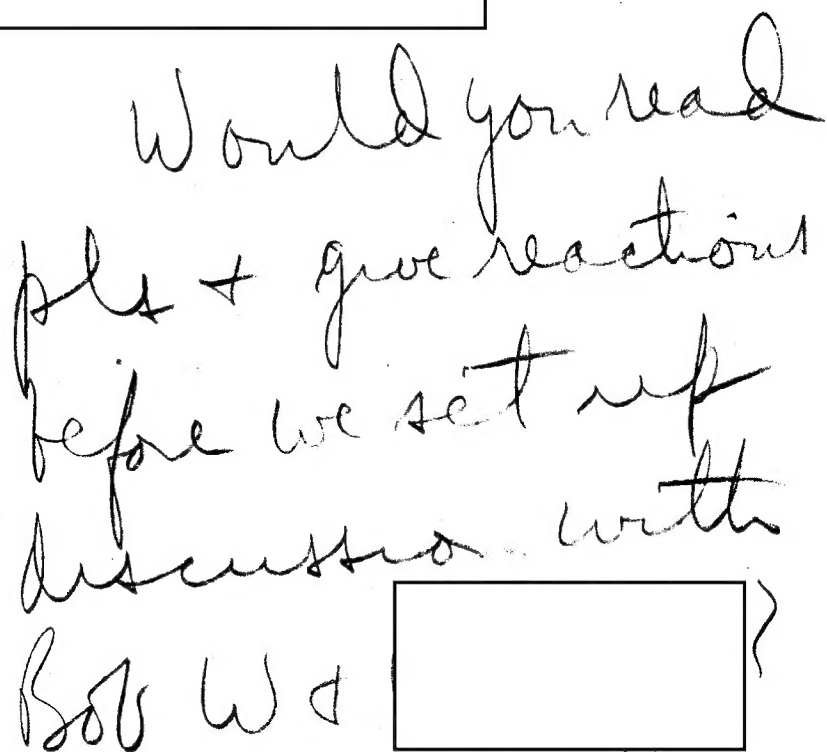 Would you read
pls + give reactions
before we set up
discussion with
Bob W & ?